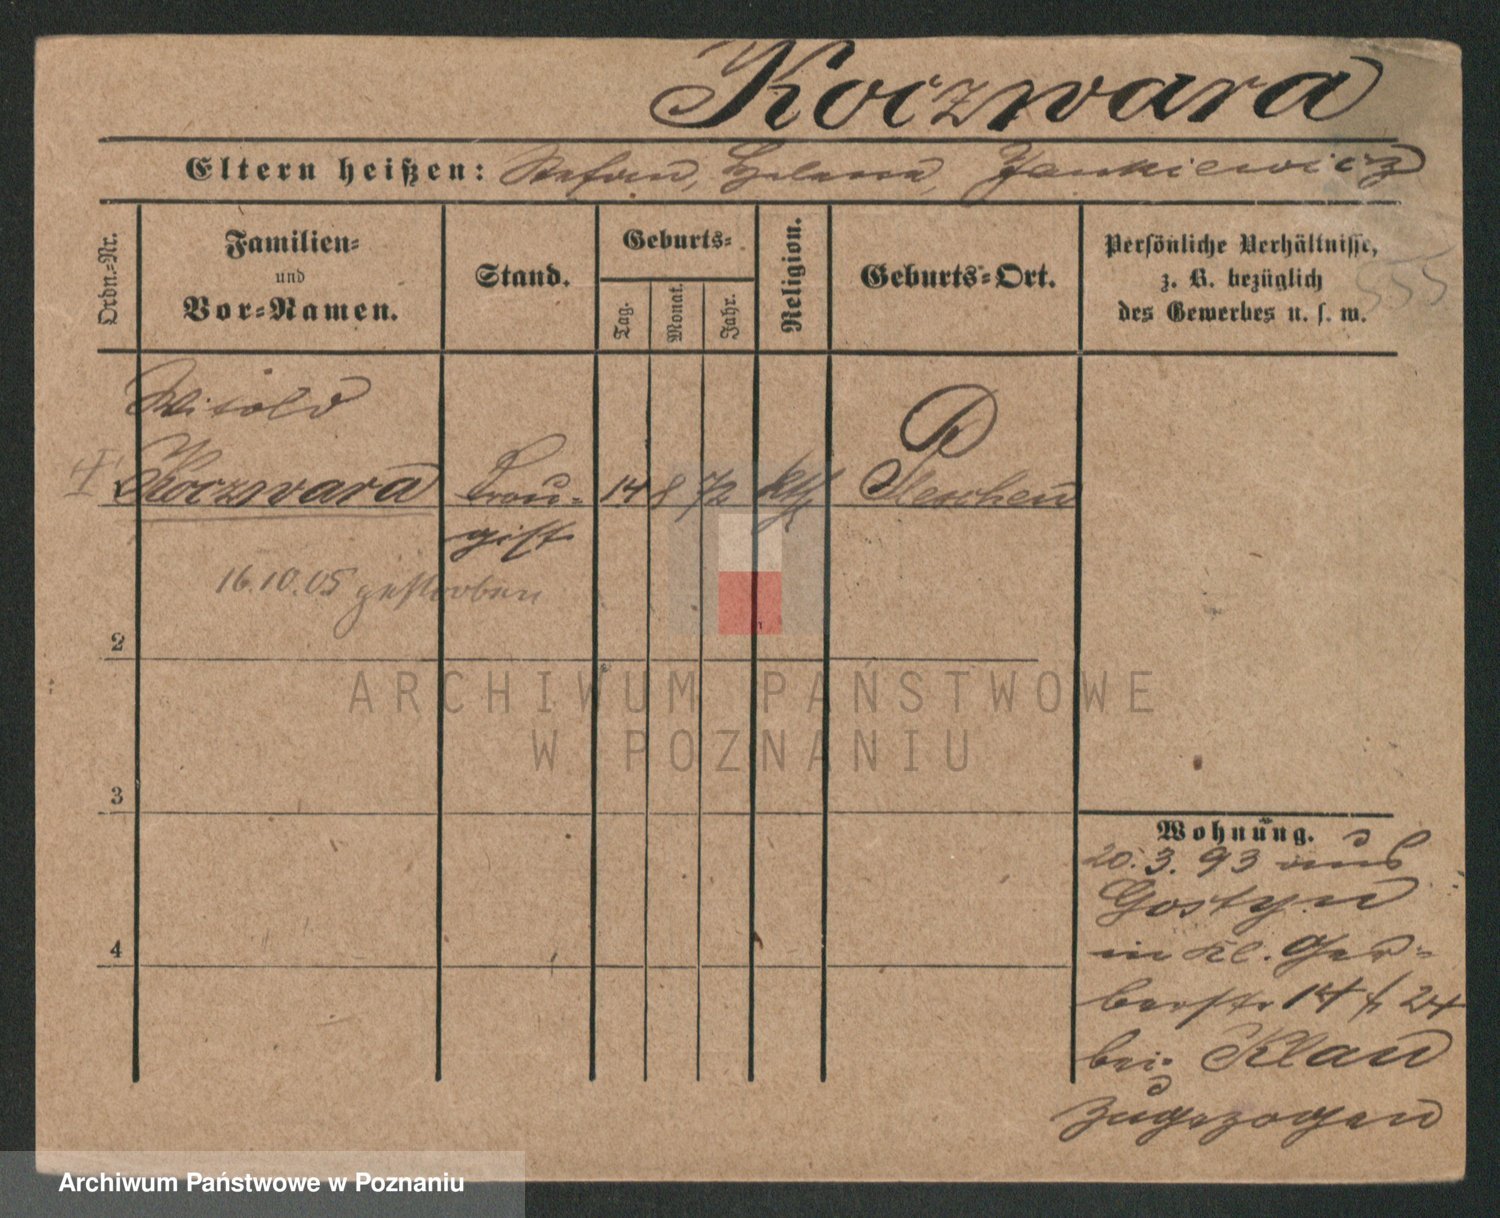 Koczwara
Eltern heißen: Stefan, Helena, Jankiewicz
Ordn.-Nr.
Familien-
und
Vor-Namen.
Stand.
Geburts-
Tag.
Monat.
Jahr.
Religion.
Geburts-Ort.
Persönliche Verhältnisse,
z. B. bezüglich
des Gewerbes u. s. w.
555
Witold
Koczwara
14 8 72 kth Pleschen
P
16.10.05 gestorben
2
3
4
Wohnung.
20.3.93 aus
Gostyn
in Kl. Ger-
berstr 14 24
bei Klau
zugezogen
ARCHIWUM PAŃSTWOWE
W POZNANIU
Archiwum Państwowe w Poznaniu